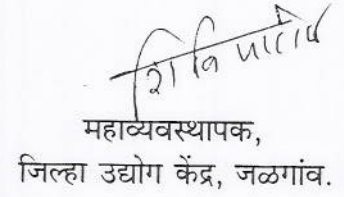 शि वि पाटील
महाव्यवस्थापक,
जिल्हा उद्योग केंद्र, जळगांव.